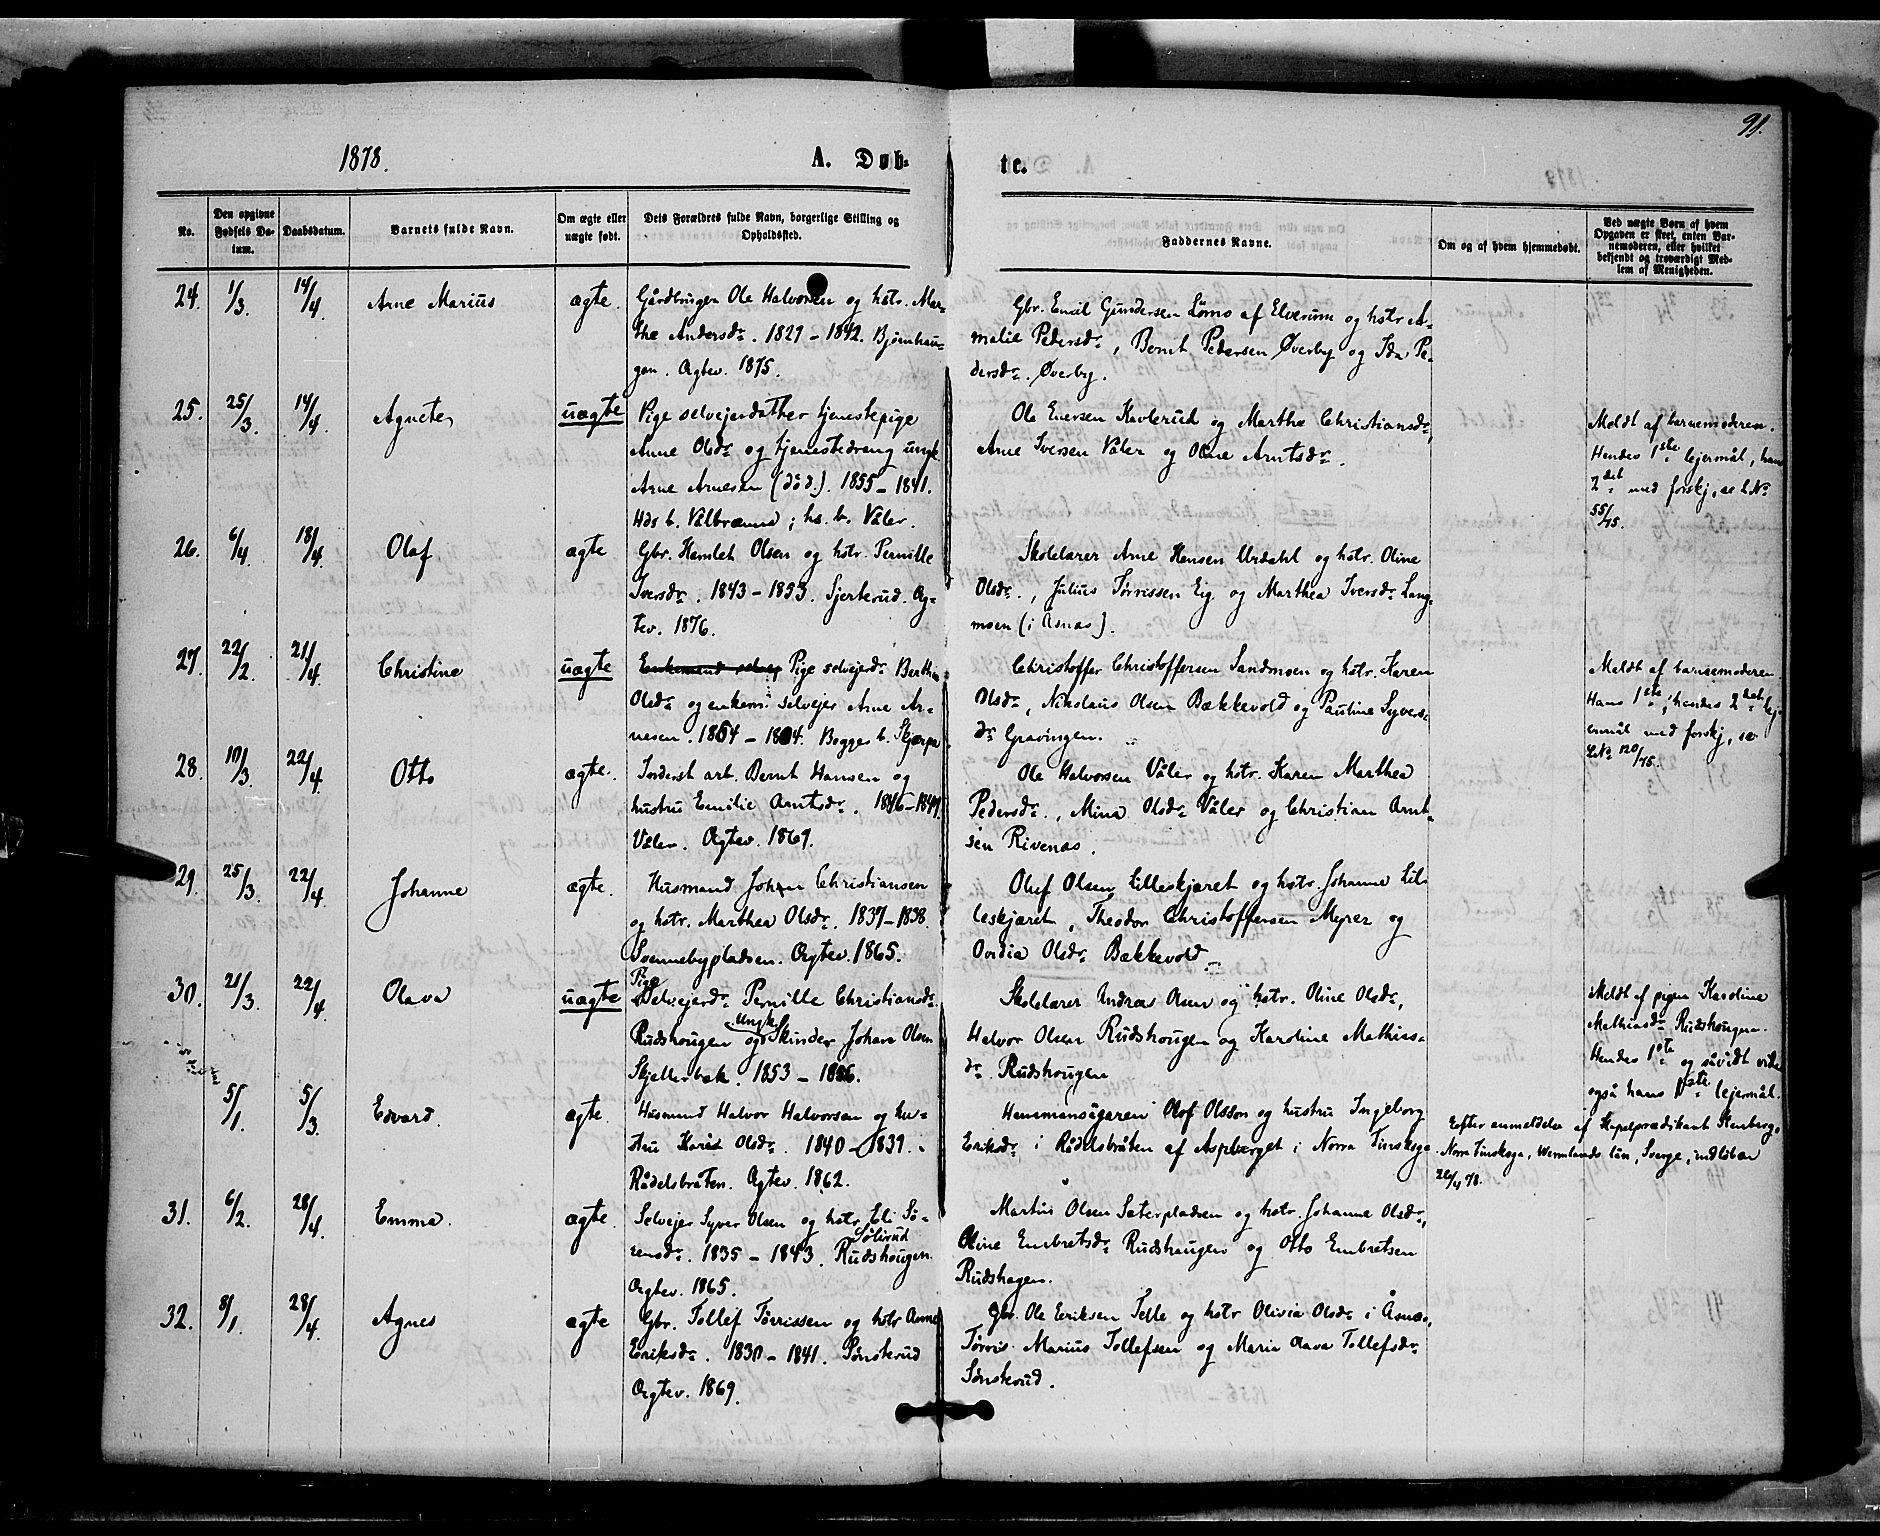 91.
1878.
A. Døb-
te.
No.
Den opgivne Fødsels Da-
tum.
Daabsdatum.
Barnets fulde Navn.
Om ægte eller
uægte født.
Dets Forældres fulde Navn, borgerlige Stilling og
Opholdssted.
Faddernes Navne.
Om og af hvem hjemmedøbt.
Ved uægte Børn af hvem
Opgaven er skeet, enten Bar-
nemoderen, eller hvilket
bekjendt og troværdigt Med-
lem af Menigheden.
24. 1/3. 14/4 Arne Marius ægte. Gårdbruger Ole Halvorsen og hstr. Mar-
the Andersdr. 1829 - 1842. Bjørnhau-
gen. Ægtev. 1875.
Gbr. Emil Gundersen Lømo af Elverum og hstr A-
malie Pedersdr., Bernt Pedersen Øverby og Ida Pe-
dersdr. Øverby.
25. 25/3. 14/4 Agnete uægte Pige selvejerdatter tjenestepige
Anne Olsdr og tjenestedreng ungk.
Arne Arnesen (død.). 1855 - 1841.
Hds b. Vålbrænna; hs. b. Våler.
Ole Enersen Kavlerud og Marthe Christiansdr,
Arne Iversen Våler og Oline Arntsdr.
Meldt af barnemoderen.
Hendes 1ste lejermål, hans
2det med forskj, se L No
55/75.
26. 6/4. 18/4 Olaf ægte Gbr. Hamlet Olsen og hstr. Pernille
Iversdr. 1843 - 1853. Sjerkerud. Æg-
tev. 1876.
Skolelærer Arne Hansen Urdahl og hstr. Oline
Olsdr., Julius Tørrissen Eig og Marthea Iversdr Lang-
moen (i Åsnæs).
27. 22/2. 21/4. Christine uægte Enkemand selvej Pige selvejerdr Berthe
Olsdr og enkem. selvejer Arne Ar-
nesen. Begges b. Skjærpe
Christoffer Christoffersen Sandmoen og hstr. Karen
Olsdr, Nikolaus Olsen Bækkevold og Pauline Syvers-
dr Gravingen.
Meldt af barnemoderen.
Hans 1ste, hendes 2det lej-
ermål med forskj, se
L No 120/75.
28. 10/3. 22/4 Otto ægte. Inderst arb. Bernt Hansen og
hustru Emilie Arntsdr. 1846 - 1849.
Våler. Ægtev. 1869.
Ole Halvorsen Våler og hstr. Karen Marthea
Pedersdr., Mina Olsdr Våler og Christian Arnt-
sen Rivenæs.
29. 25/3. 22/4. Johanne ægte. Husmand Johan Christiansen
og hstr. Marthea Olsdr. 1837 - 1838.
Svennebypladsen. Ægtev. 1865.
Oluf Olsen Lilleskjæret og hstr. Johanne Lil-
leskjæret, Theodor Christoffersen Myrer og
Ovidia Olsdr Bækkevold.
30. 21/3. 22/4. Olava uægte Pige
Selvejerdr Pernille Christiansdr.
Rudshougen og ungk. Skinder Johan Olsen
Skjellerbæk. 1853 - 1856.
Skolelærer Andreas Olsen og hstr. Oline Olsdr,
Halvor Olsen Rudshougen og Karoline Mathias-
dr. Rudshougen
Meldt af pigen Karoline
Mathiasdr Rudshougen.
Hendes 1ste og såvidt vides
også hans 1ste lejermål.
5/1. 5/3. Edvard. ægte. Husmand Halvor Halvorsen og hu-
stru Kari Olsdr. 1840 - 1839.
Rådelsbråten. Ægtev. 1862.
Hemmansägaren Olof Olsson og hustru Ingeborg
Eriksdr i Rådelsbråten af Aspberget i Norra Finskoga
Efter anmeldelse af Kapelprædikant Stenberg,
Norra Finskoga, Wermlands län, Sverge, indløben
26/4 78.
31. 6/2. 28/4. Emma. ægte. Selvejer Syver Olsen og hstr. Eli Sø-
rensdr. 1835 - 1843. Sølirud Rudshougen.
Ægtev. 1865.
Martin Olsen Sæterpladsen og hstr. Johanne Olsdr,
Oline Embretsdr Rudshaugen og Otto Embretsen
Rudshagen.
32. 8/1. 28/4. Agnes ægte Gbr. Tollef Tørrissen og hstr Anne
Eriksdr. 1830 - 1841. Sønskerud
Ægtev. 1869.
Gbr. Ole Eriksen Telle og hstr Olivia Olsdr i Åsnæs,
Tørris Marius Tollefsen og Marie Olava Tollefsdr
Sønskerud.